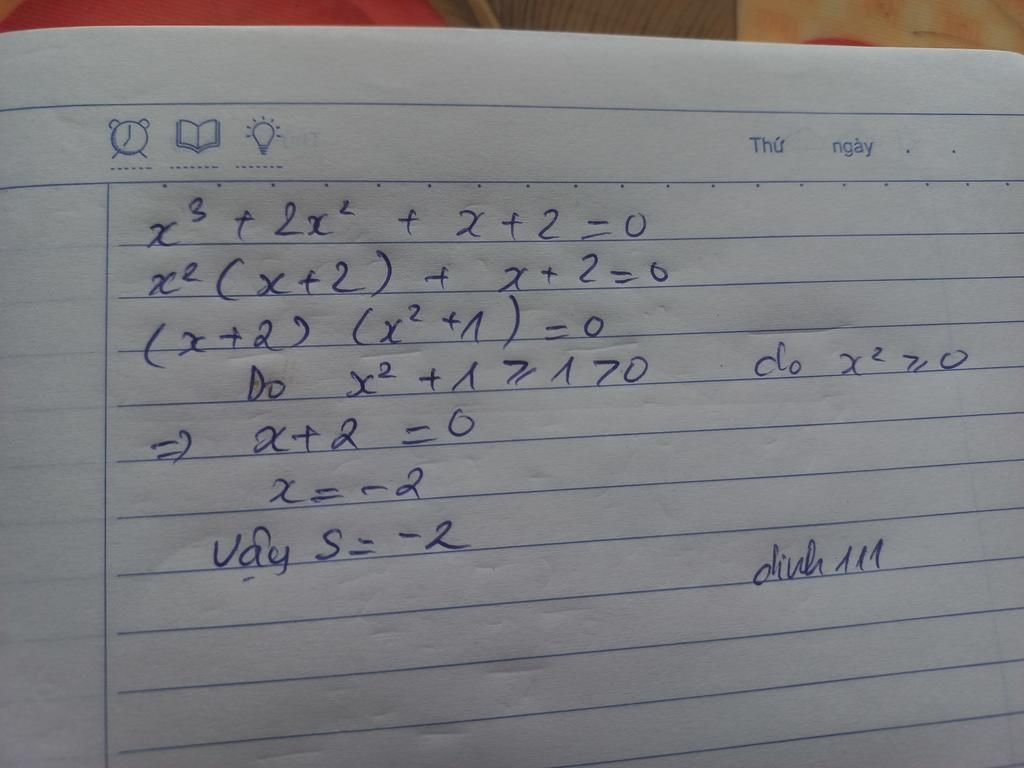 Thứ ngày . .
x³ + 2x² + x + 2 = 0
x² (x+2) + x + 2 = 0
(x+2) (x² +1) = 0
Do x² + 1 ⩾ 1 > 0 do x² ⩾ 0
=> x + 2 = 0
x = -2
Vậy S = -2
dinh 111